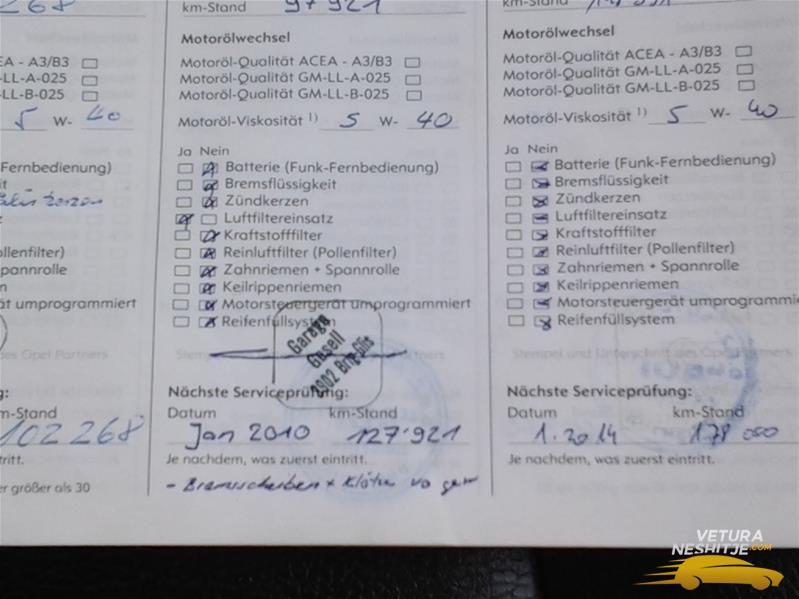 268
km-Stand 97921
km-Stand
Motorölwechsel
Motorölwechsel
ACEA - A3/B3
Motoröl-Qualität ACEA - A3/B3
Motoröl-Qualität ACEA - A3/B3
-LL-A-025
Motoröl-Qualität GM-LL-A-025
Motoröl-Qualität GM-LL-A-025
-LL-B-025
Motoröl-Qualität GM-LL-B-025
Motoröl-Qualität GM-LL-B-025
5 W- 40
Motoröl-Viskosität 1) 5 W- 40
Motoröl-Viskosität 1) 5 W- 40
Ja Nein
Ja Nein
Fernbedienung)
Batterie (Funk-Fernbedienung)
Batterie (Funk-Fernbedienung)
Bremsflüssigkeit
Bremsflüssigkeit
Zündkerzen
Zündkerzen
Luftfiltereinsatz
Luftfiltereinsatz
Kraftstofffilter
Kraftstofffilter
ollenfilter)
Reinluftfilter (Pollenfilter)
Reinluftfilter (Pollenfilter)
Spannrolle
Zahnriemen + Spannrolle
Zahnriemen + Spannrolle
Keilrippenriemen
Keilrippenriemen
rät umprogrammiert
Motorsteuergerät umprogrammiert
Motorsteuergerät umprogrammie
Reifenfüllsystem
Reifenfüllsystem
Garage
Gsell
des Opel Partners
Stempel und Unterschrift des Opel Partners
g:
Nächste Serviceprüfung:
Nächste Serviceprüfung:
m-Stand
Datum km-Stand
Datum km-Stand
102 268
Jan 2010 127'921
1.2014 178 000
ntritt.
Je nachdem, was zuerst eintritt.
Je nachdem, was zuerst eintritt.
er größer als 30
- Bremsscheiben + Klötze
VETURA
NESHITJE.COM